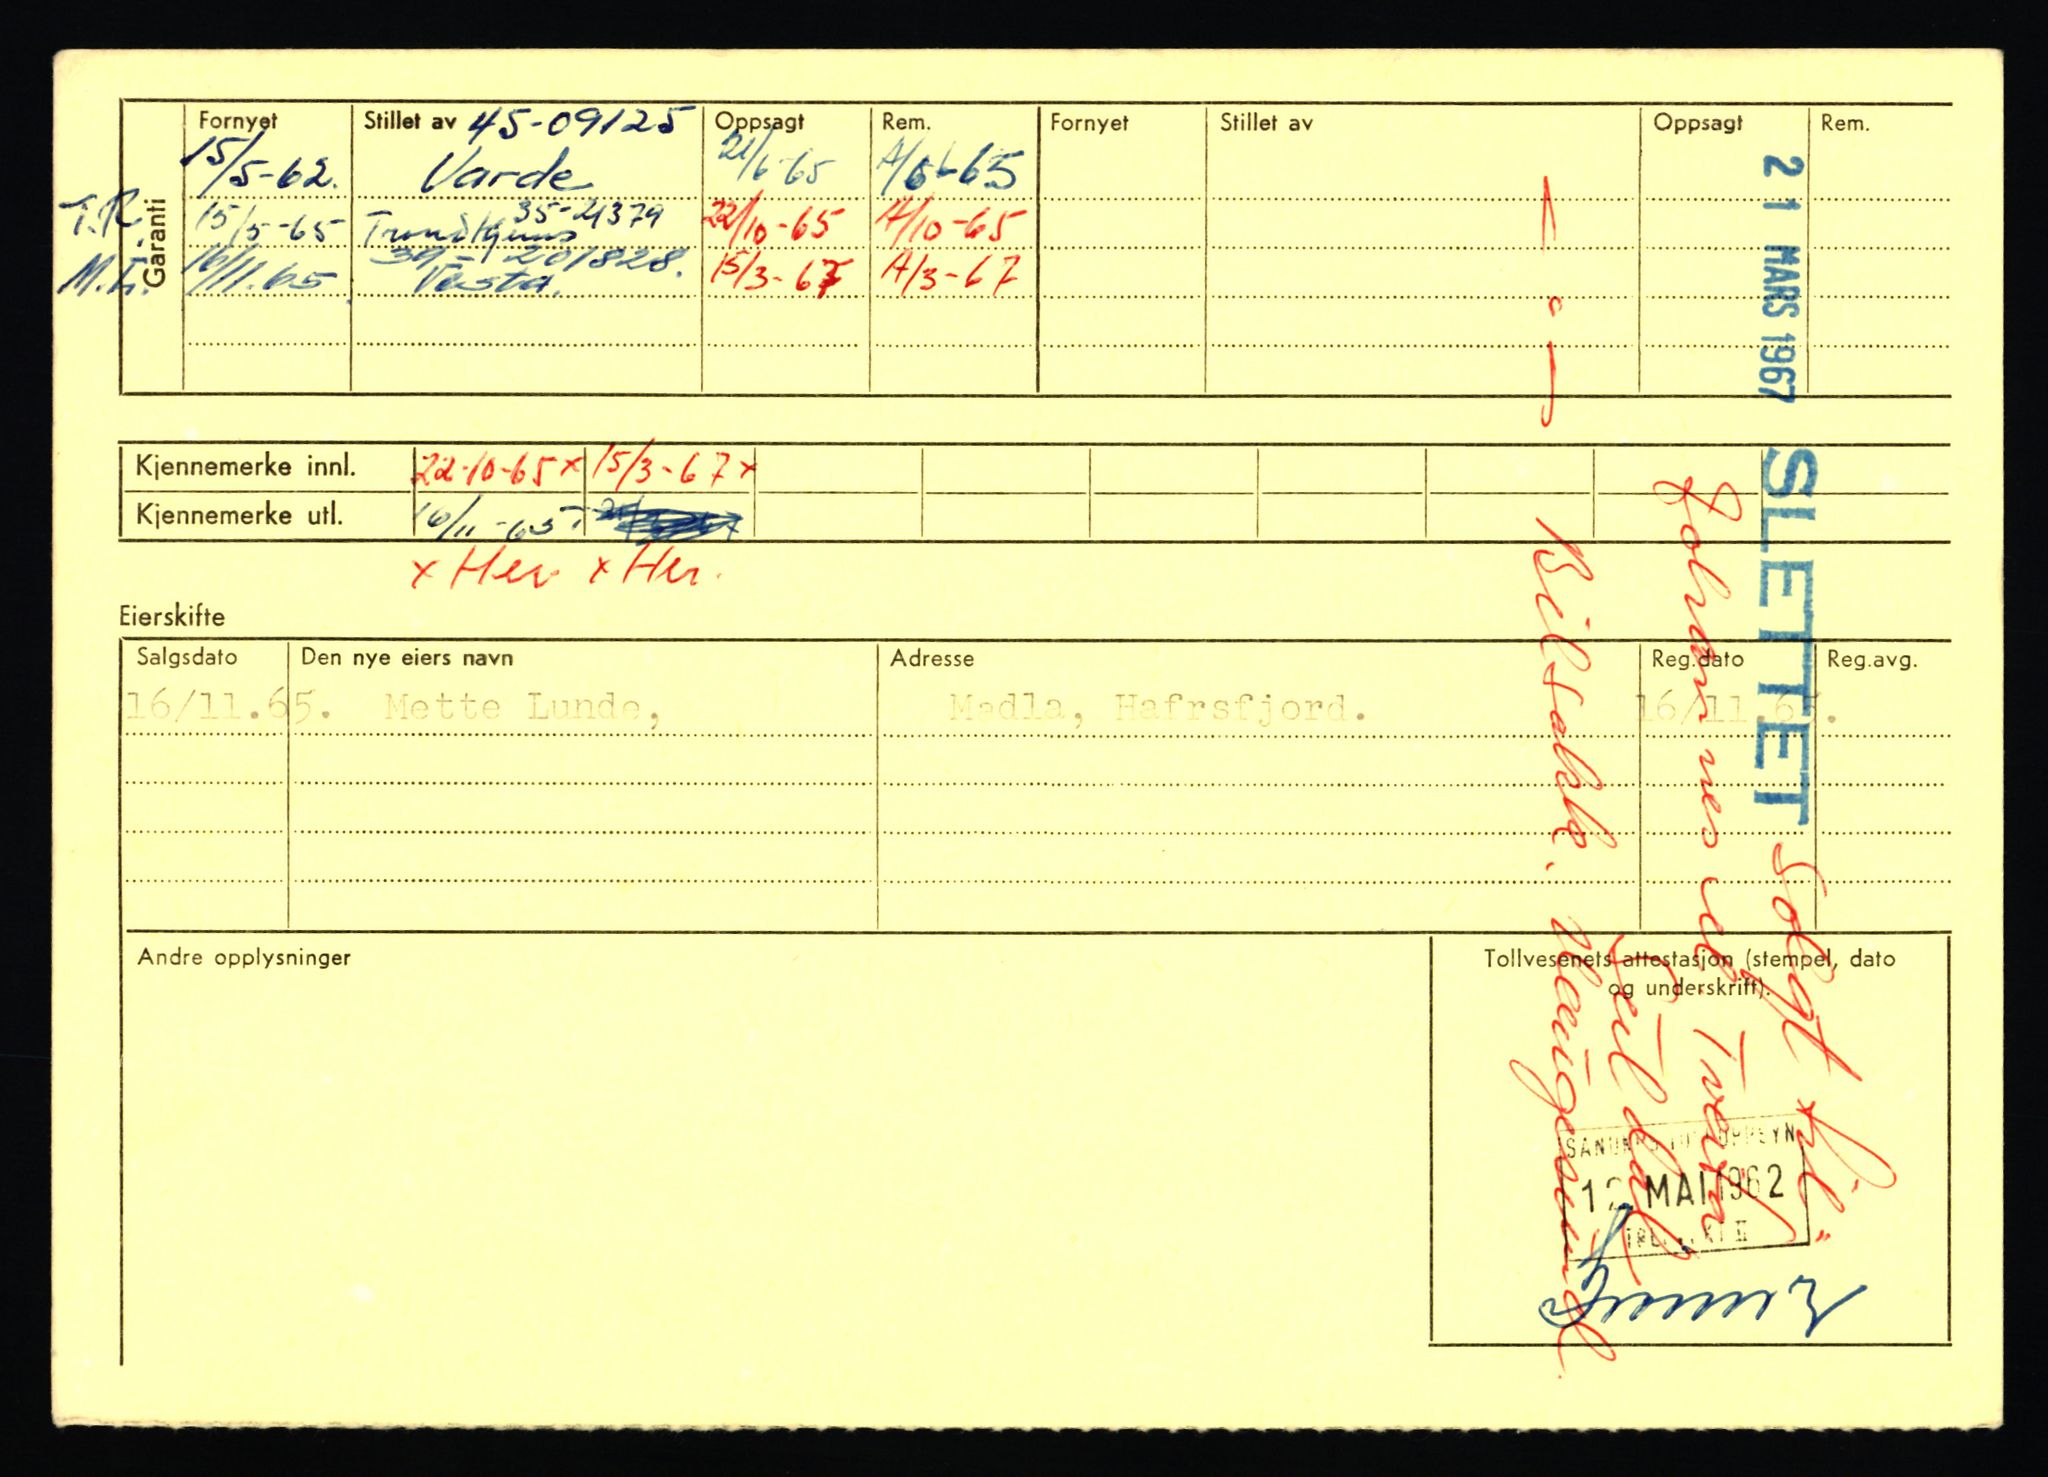 Garanti
Fornyet Stillet av 45-09125 Oppsagt Rem. Fornyet Stillet av Oppsagt Rem.
15/5-62. Varde 21/6-65 A/6-65
T.R. 15/5-65 35-21379 22/10-65 A/10-65
M.L. 16/11.65 39-201828. Vesta. 15/3-67 A/3-67
Kjennemerke innl. 22-10-65x 15/3-67x
Kjennemerke utl. 16/11-65
x Her x Her.
Eierskifte
Salgsdato Den nye eiers navn Adresse Reg.dato Reg.avg.
16/11.65. Mette Lunde, Madla, Hafrsfjord. 16/11 65.
Andre opplysninger
Tollvesenets attestasjon (stempel, dato
og underskrift).
12 MAI 1962
21 MARS 1967 SLETTET Solgt til
Johannes
Bilsakk. Haugesund